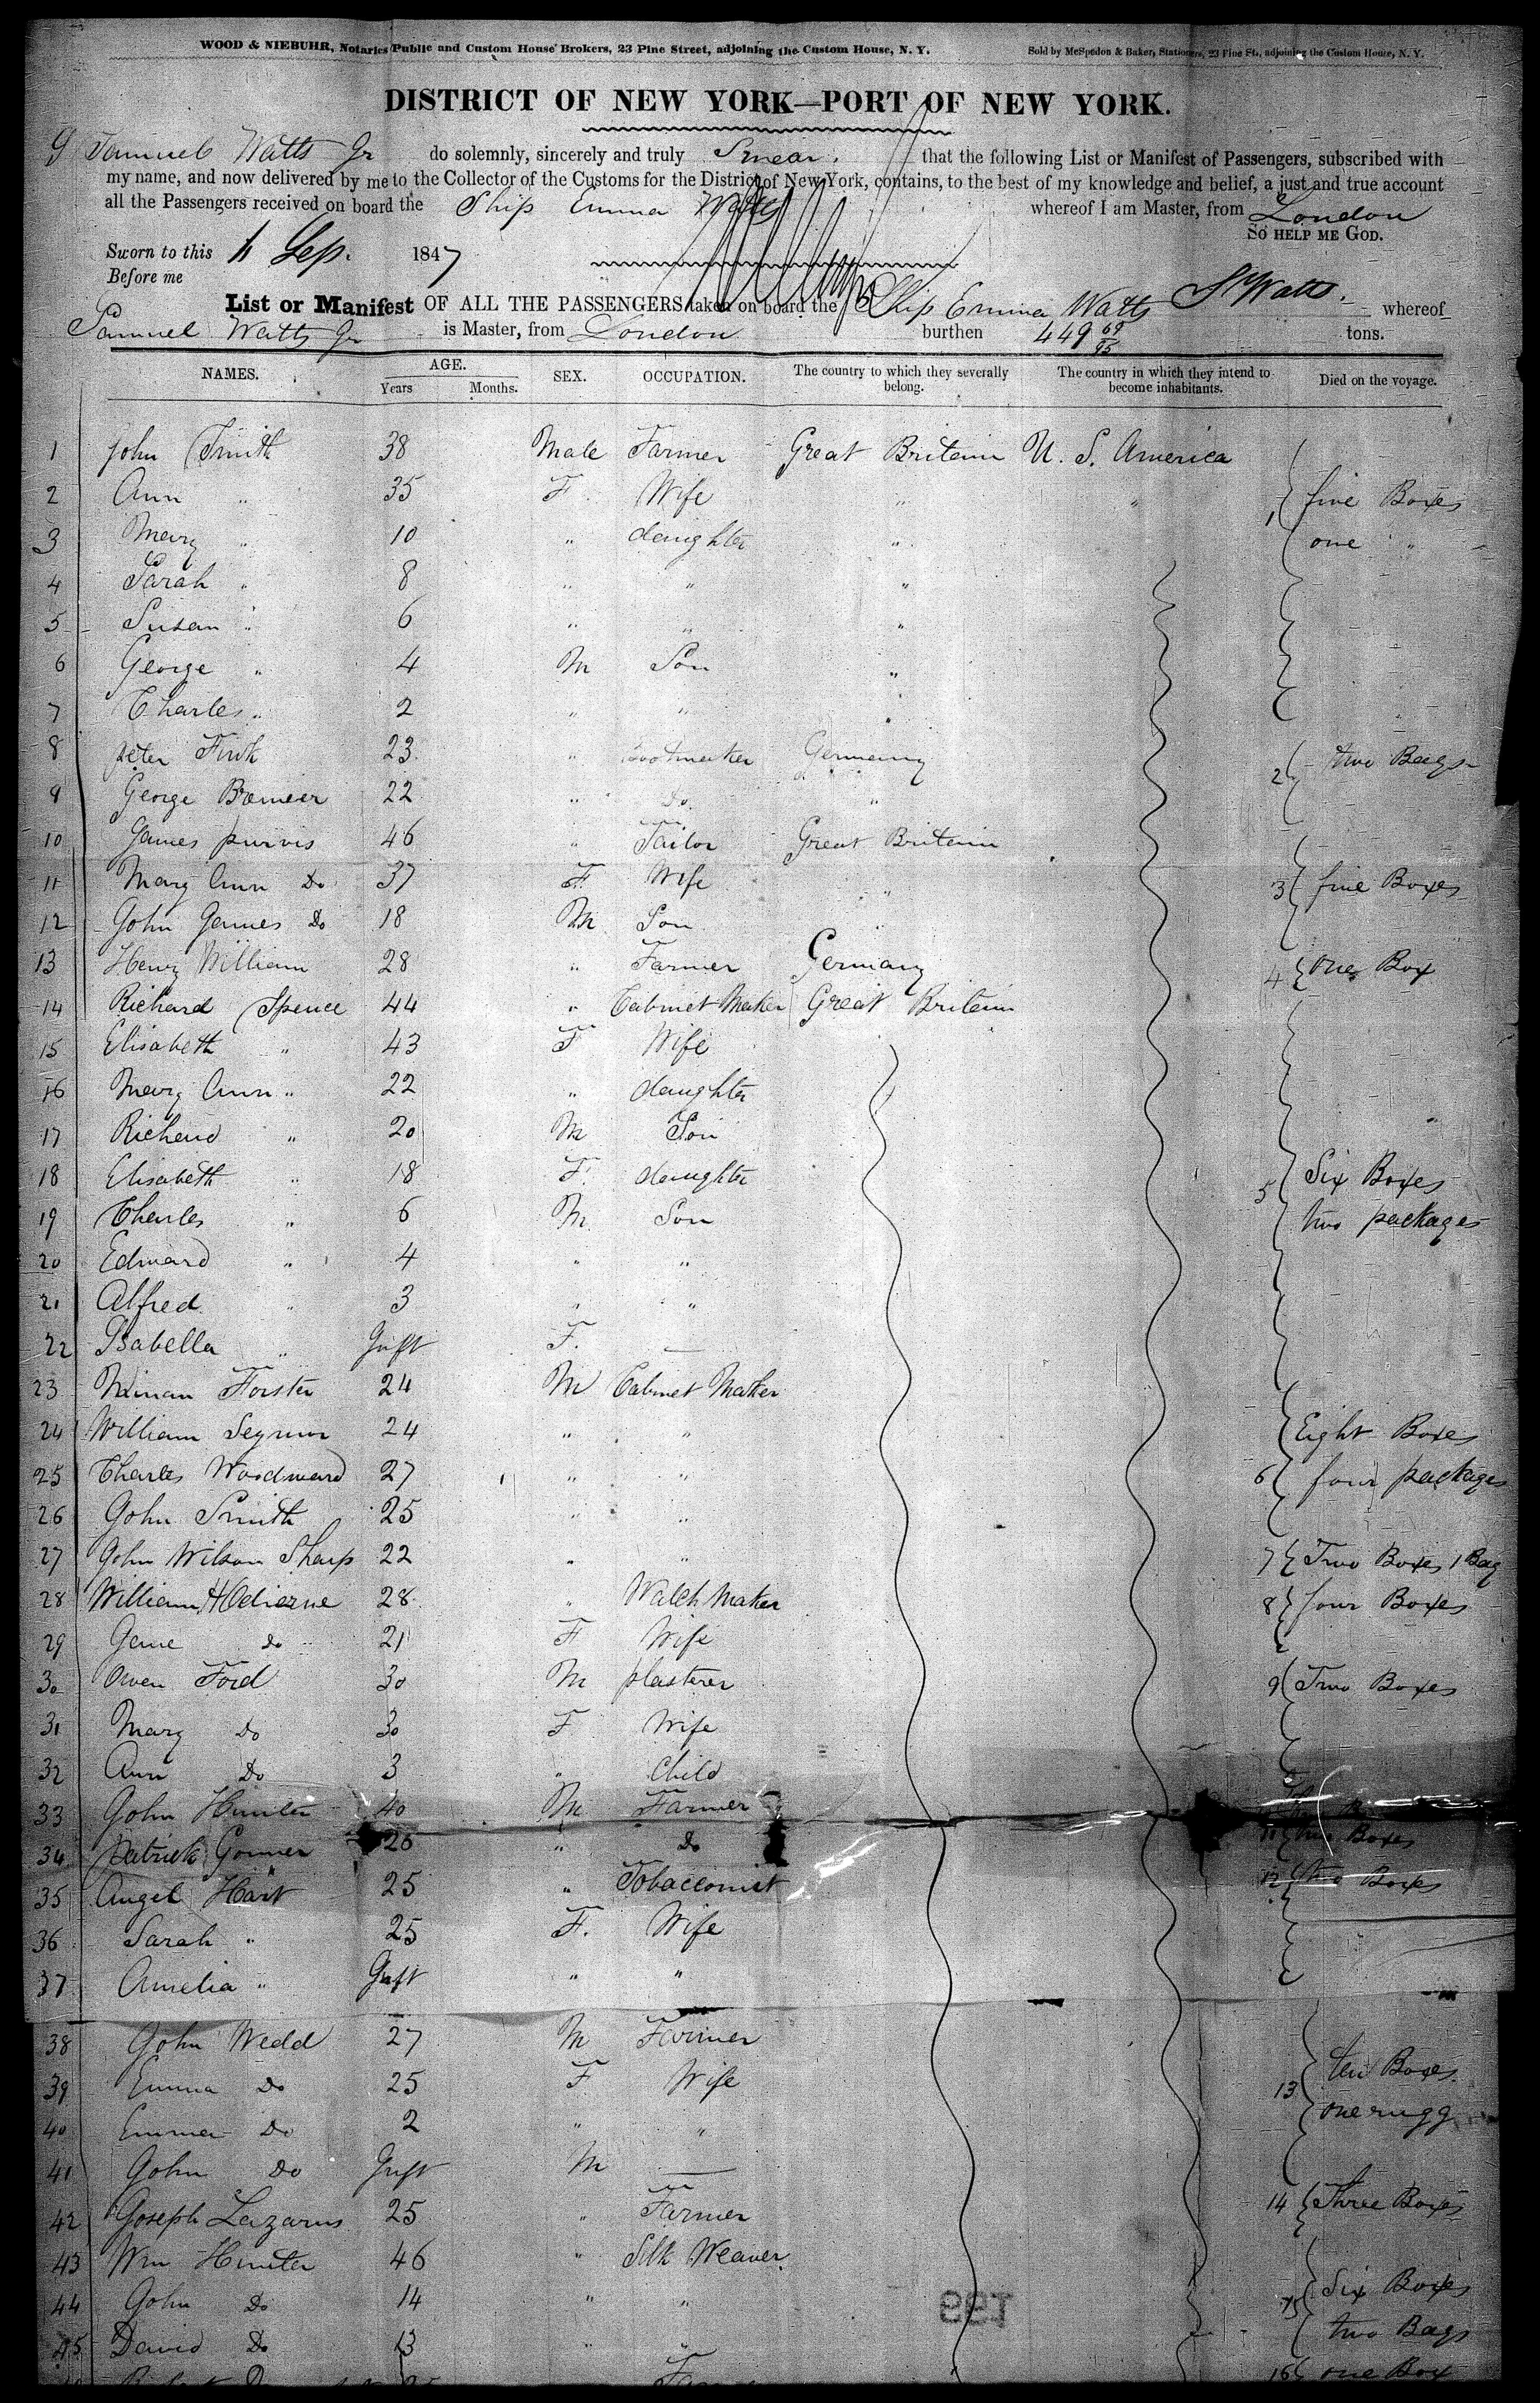 WOOD & NIEBUHR, Notaries Public and Custom House Brokers, 23 Pine Street, adjoining the Custom House, N. Y. Sold by McSpedon & Baker, Stationers, 23 Pine St., adjoining the Custom House, N. Y.
DISTRICT OF NEW YORK—PORT OF NEW YORK.
I Samuel Watts Jr do solemnly, sincerely and truly Swear that the following List or Manifest of Passengers, subscribed with
my name, and now delivered by me to the Collector of the Customs for the District of New York, contains, to the best of my knowledge and belief, a just and true account
all the Passengers received on board the Ship Emma Watts whereof I am Master, from London
SO HELP ME GOD.
Sworn to this Sep. 1847
Before me
S Watts.
List or Manifest OF ALL THE PASSENGERS taken on board the Ship Emma Watts whereof
Samuel Watts Jr is Master, from London burthen 449 69/95 tons.
NAMES. AGE. SEX. OCCUPATION. The country to which they severally belong. The country in which they intend to become inhabitants. Died on the voyage.
Years Months.
1 John Smith 38 Male Farmer Great Britain U. S. America
2 Ann " 35 F. Wife " " 1 five Boxes
3 Mary " 10 " daughter " one "
4 Sarah " 8 " " "
5 Susan " 6 " " "
6 George " 4 M Son "
7 Charles " 2 " " "
8 peter Fink 23 " Bootmaker Germany 2 two Bags
9 George 22 " Do "
10 James purvis 46 " Tailor Great Britain
11 Mary Ann Do 37 F Wife " 3 five Boxes
12 John James Do 18 M Son "
13 Henry William 28 " Farmer Germany 4 one Box
14 Richard Spence 44 " Cabinet Maker Great Britain
15 Elisabeth " 43 F Wife
16 Mary Ann " 22 " daughter
17 Richard " 20 M Son
18 Elisabeth " 18 F. daughter 5 Six Boxes
19 Charles " 6 M Son two packages
20 Edward " 4 " "
21 Alfred " 3 " "
22 Isabella " Inft F. —
23 Forster 24 M Cabinet Maker
24 William Seymor 24 " " Eight Boxes
25 Charles Woodward 27 " " 6 four packages
26 John Smith 25 " "
27 John Wilson Sharp 22 " " 7 Two Boxes 1 Bag
28 William 28 " Watch Maker 8 four Boxes
29 Jane do 21 F Wife
30 Owen Ford 30 M plasterer 9 Two Boxes
31 Mary Do 30 F Wife
32 Ann Do 3 " Child
33 John Hunter 40 M Farmer
34 Patrick 26 " Do 11 two Boxes
35 Angel Hart 25 " Tobacconist 12 two Boxes
36 Sarah " 25 F. Wife
37 Amelia " Inft " "
38 John Wedd 27 M Farmer
39 Emma Do 25 F Wife 13 ten Boxes
40 Emma Do 2 " " one rugg
41 John Do Inft M —
42 Joseph Lazarus 25 " Farmer 14 Three Boxes
43 Wm Hunter 46 " Silk Weaver
44 John Do 14 " " 15 Six Boxes
45 David Do 13 " " two Bags
16 one Box
199